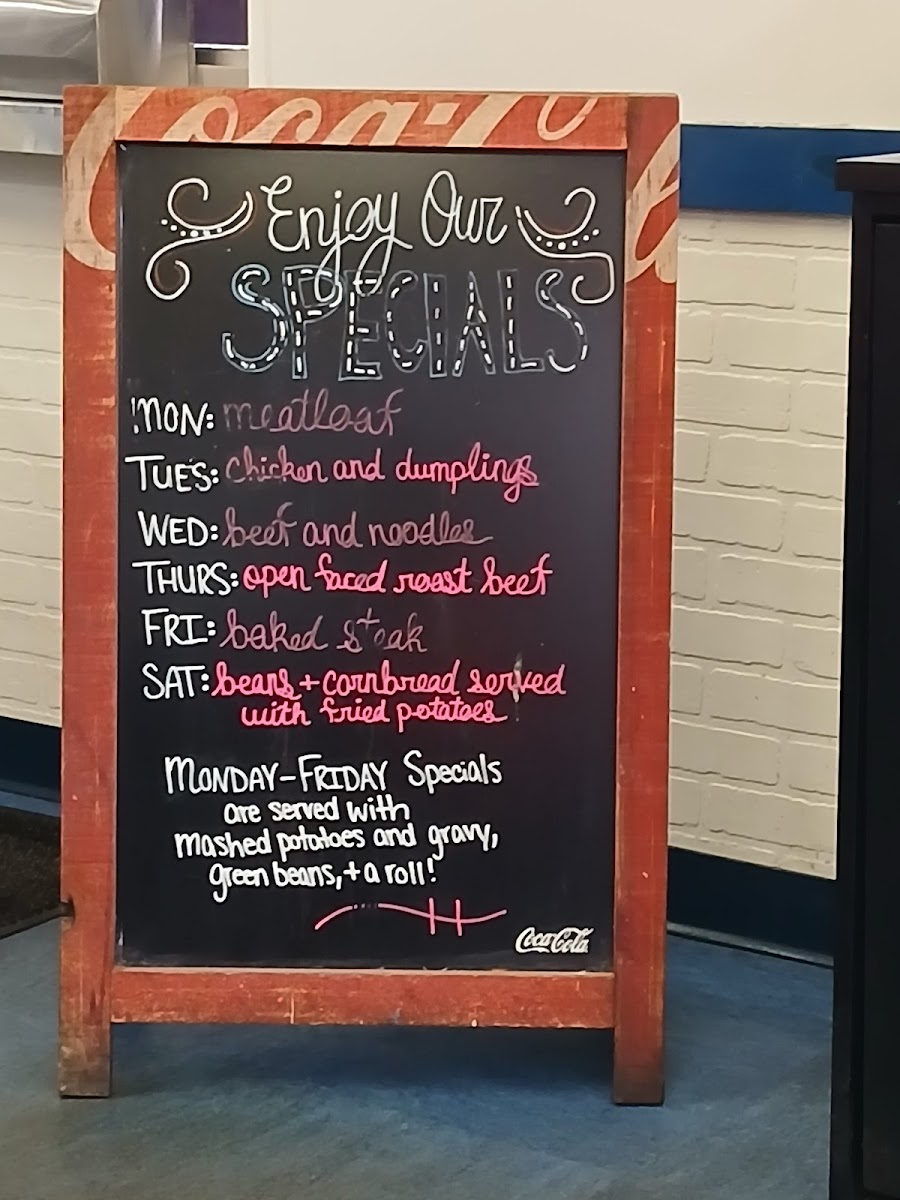 Coca-Cola
Enjoy Our
SPECIALS
MON: meatloaf
TUES: chicken and dumplings
WED: beef and noodles
THURS: open faced roast beef
FRI: baked steak
SAT: beans + cornbread served
with fried potatoes
MONDAY-FRIDAY Specials
are served with
mashed potatoes and gravy,
green beans, + a roll!
Coca-Cola